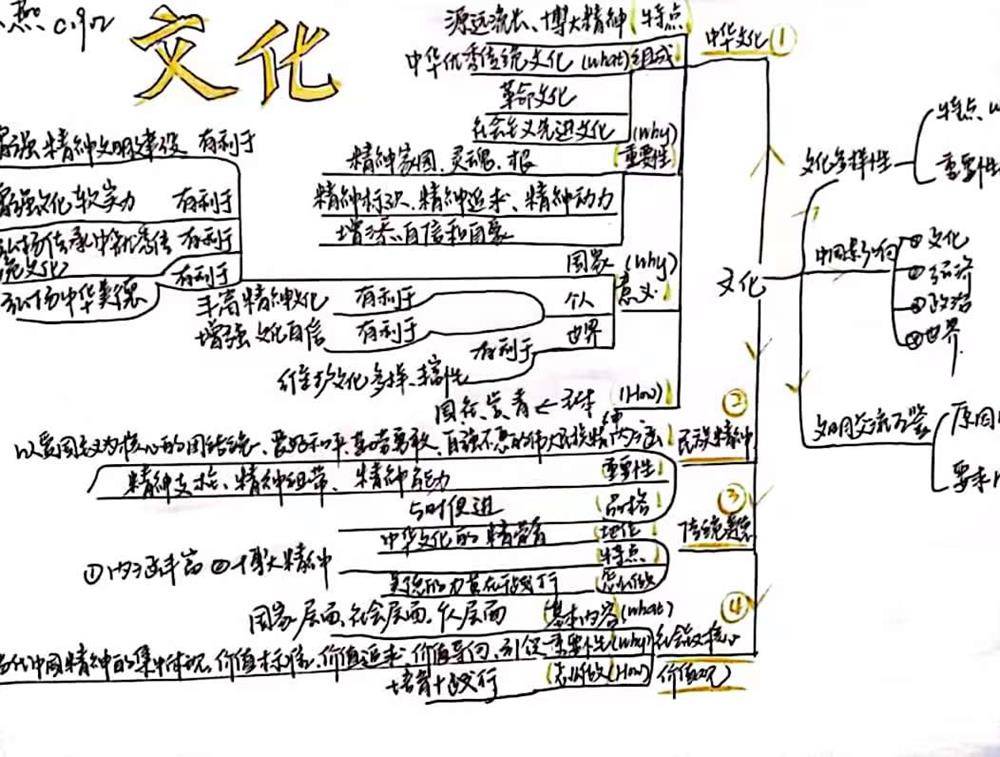 文化
源远流长、博大精神 特点
中华文化 ①
中华优秀传统文化 (what) 组成
革命文化
社会主义先进文化
(why) 重要性
精神家园、灵魂、根
精神标识、精神追求、精神动力
增添自信和自豪
增强精神文明建设 有利于
增强文化软实力 有利于
弘扬传承中华优秀传统文化 有利于
弘扬中华美德 有利于
国家 (why) 意义
丰富精神文化 有利于 个人
增强文化自信 有利于
世界
有利于
维护文化多样、丰富性
(How)
②
以爱国主义为核心的团结统一、爱好和平、勤劳勇敢、自强不息的伟大民族精神 内涵
民族精神
精神支柱、精神纽带、精神动力 重要性
与时俱进 品格
③
传统美德
中华文化的精髓 地位
①内涵丰富 ②博大精神 特点
美德的力量在践行 怎么做
④
国家层面、社会层面、个人层面 基本内容 (what)
当代中国精神的集中体现、价值标准、价值追求、价值导向、引领 重要性 (why)
社会核心
价值观
培育+践行 怎么做 (How)
文化
文化多样性
特点
重要性
中国影响
① 文化
② 经济
③ 政治
④ 世界
文明交流互鉴
原因
要求